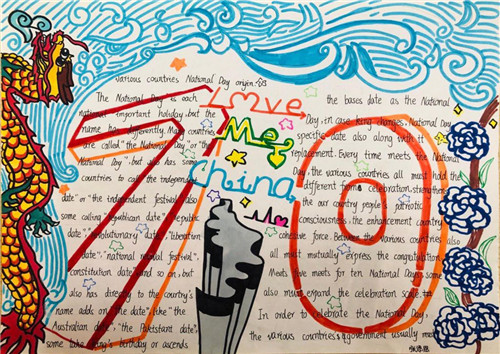 various countries National Day origin
The National Day is each
national important holiday, but the
name has differently. Many countries
are called "the National Day" or "the
national Day", but also has some
countries to call the independent
date" or "the independent festival" also
some calling "republican date", "republic
date", "revolutionary date", "liberation
date", "national revival festival",
constitution date" and so on, but
also has directly to the country's
name adds on the "date", like "the
Australian date", "the Pakestant date",
some take king's birthday or ascends
Love
Me
China
Me
the bases date as the National
Day, in case king changes, National Day
specific date also along with it
replacement. Every time meets the National
Day, the various countries all must hold the
different form celebration, strengthens
the our country people's patriotic
consciousness, the enhancement country
cohesive force. Between the various countries also
all must mutually express the congratulation
Meets five meets for ten National Days, some
also must expand the celebration scale.
In order to celebrate the National Day,
the various countries government usually meet